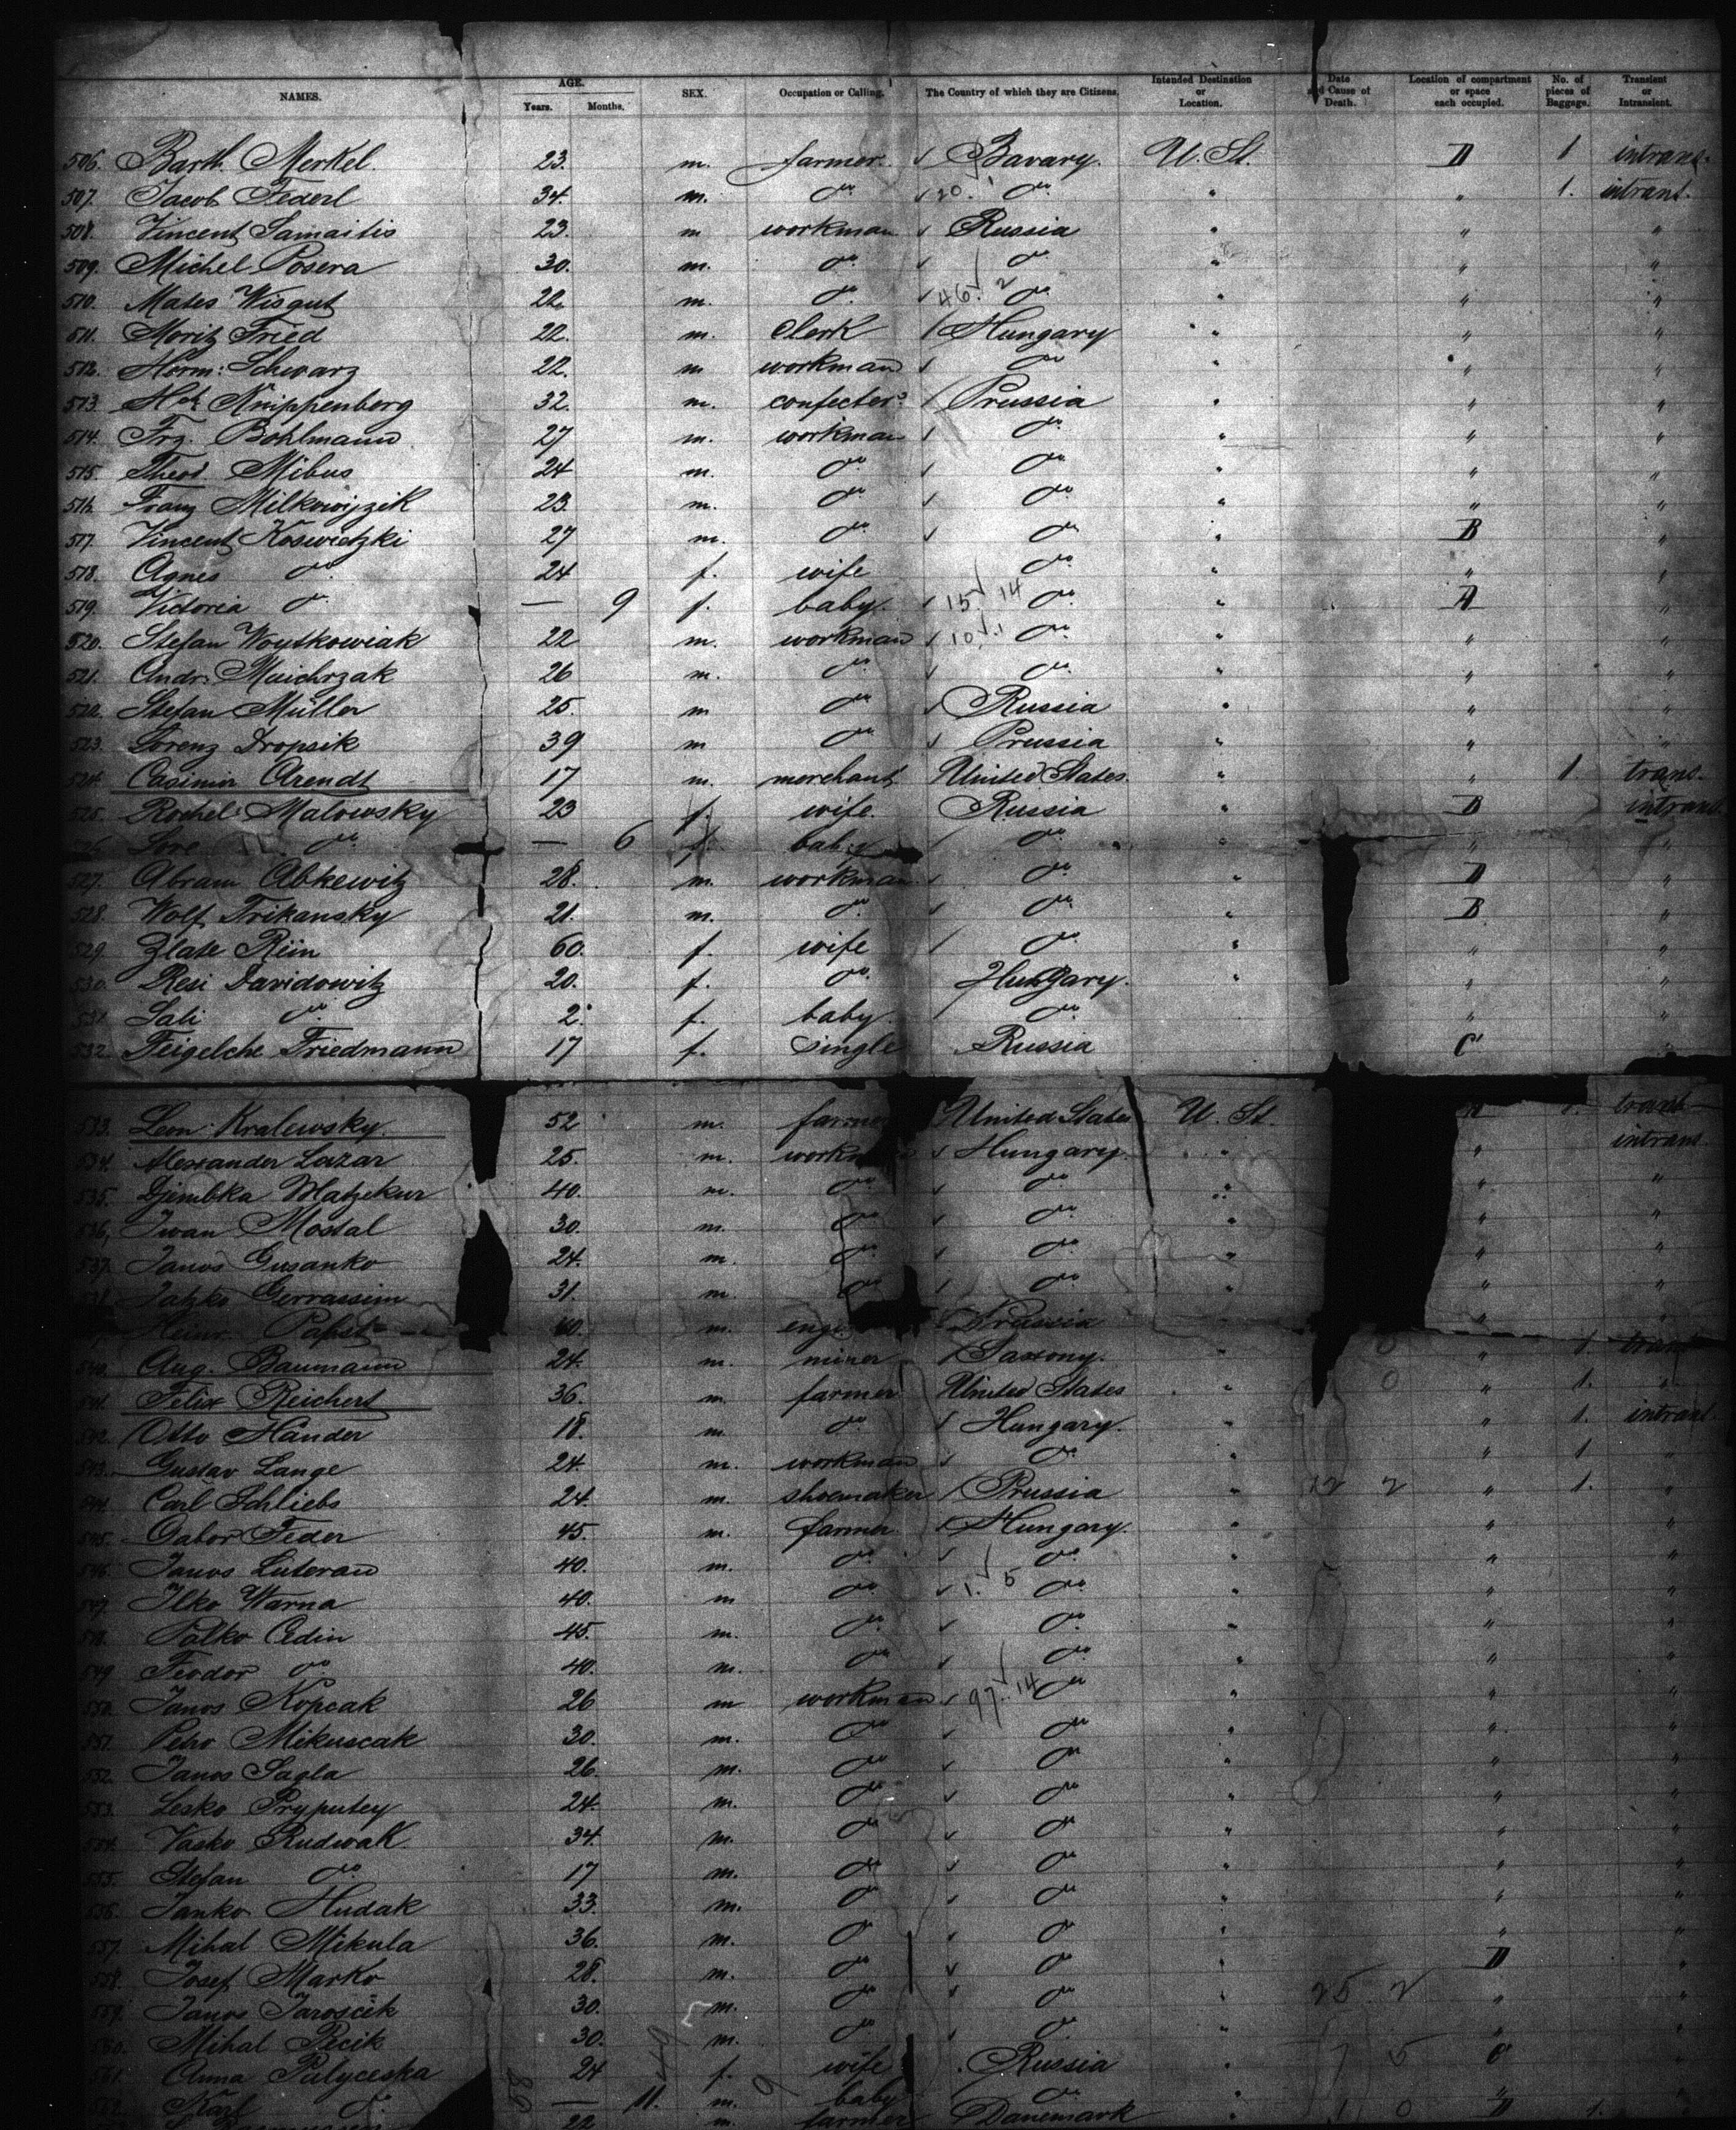 NAMES. AGE. Years. Months. SEX. Occupation or Calling. The Country of which they are Citizens. Intended Destination or Location. Date and Cause of Death. Location of compartment or space each occupied. No. of pieces of Baggage. Transient or Intransient.
506. Barth. Merkel. 23. m. farmer. Bavary. U. St. D 1 intrans.
507. Jacob Federl 34. m. do 20. 1 do " " 1. intrant.
508. Vincent Samaitis 23. m workman Russia " " "
509. Michel Posera 30. m. do do " " "
510. Mates Wisgut 22. m. do 46. 2 do " " "
511. Moritz Fried 22. m. Clerk Hungary " " "
512. Herm: Schwarz 22. m workman do " " "
513. Hch Knippenberg 32. m. confecter Prussia " " "
514. Frz. Bohlmann 27 m. workman do " " "
515. Theod Mibus 24 m. do do " " "
516. Franz Milkowijzik 23. m. do do " " "
517. Vincent Koswietzki 27 m. do do " B "
518. Agnes do 24 f. wife do " " "
519. Victoria do — 9 f. baby. 15 14 do " D "
520. Stefan Woytkowiak 22 m. workman 10. 1 do " " "
521. Andr. Muichrzak 26 m. do do " " "
522. Stefan Müller 25. m do Russia " " "
523. Lorenz Dropsik 39 m do Prussia " " "
524. Casimir Arendt 17 m. merchant United States. " " 1. trans.
525. Rochel Malowsky 23 f. wife. Russia " B intrans.
526 Sore do — 6 f. baby do " " "
527. Abram Abkewitz 28. m. workman do " D "
528. Wolf Trikansky 21. m. do do " B "
529. Zlate Rün 60. f. wife do " " "
530. Resi Davidowitz 20. f. do Hungary. " " "
531. Sali do 2. f. baby. do " "
532. Feigelche Friedmann 17 f. Single Russia C "
533. Leon Kralewsky. 52 m. farmer United States U. St. 1. trans
534. Alexander Lazar 25. m. workman Hungary. " " intrans.
535. Djembka Matzekur 40. m. do do " " "
536. Iwan Mostal 30. m. do do " " "
537. Janos Gusanko 24. m. do do " " "
538. Jatzko Gerrassim 31. m. do do " " "
Heinr. Pabst 40. m. Prussia " "
540. Aug. Baumann 24. m. miner Saxony. " 0 " 1. trans
541. Felix Reichert 36. m. farmer United States " 0 " 1. "
542. Otto Händer 18. m. do Hungary. " " 1. intrant.
543. Gustav Lange 24. m. workman do " " 1 "
544. Carl Schliebs 24. m. shoemaker Prussia " 12 2 " 1. "
545. Gabor Feder 45. m. farmer. Hungary. " " "
546. Janos Luteran 40. m. do do " " "
547. Ilko Warna 40. m do 1. 5 do " " "
548. Palko Cedin 45. m. do do " " "
549 Feodor do 40. m. do do " " "
550. Janos Kopcak 26 m workman 97. 14 do " " "
551. Petro Mikuscak 30. m. do do " " "
552. Janos Sagla 26. m. do do " " "
553. Lesko Pryputey 24. m. do do " " "
554. Vasko Rudwak. 34. m. do do " " "
555. Stefan do 17 m. do do " " "
556. Janko Hudak 33. m. do do " " "
557. Mihal Mikula 36. m. do do " " "
558. Josef Marko 28. m. do do " D "
559. Janos Jaroscik 30. m. do do " 25. 2 " "
560. Mihal Pecik 30. m. do do " " "
561. Anna Palyceska 24 f. wife Russia " 7 5 C "
562. Karl do — 11. m. baby do " " "
22 m. farmer Danemark " 1 0 D 1. "